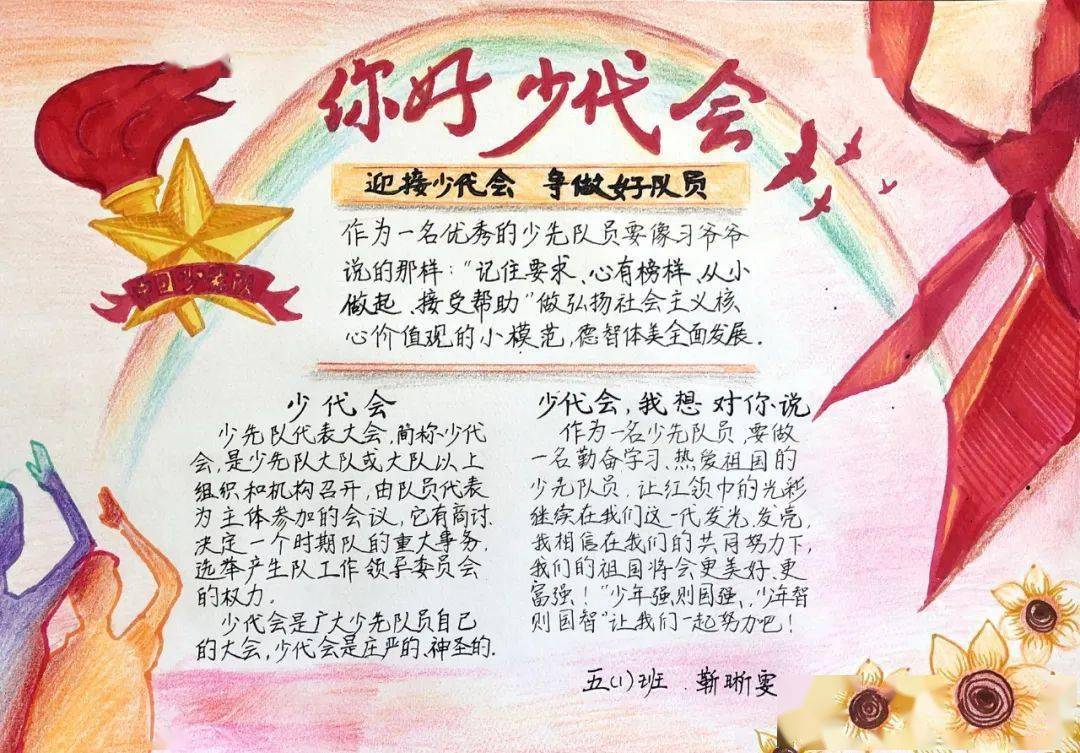 你好 少代会
迎接少代会 争做好队员
作为一名优秀的少先队员要像习爷爷
说的那样:“记住要求、心有榜样、从小
做起、接受帮助”做弘扬社会主义核
心价值观的小模范,德智体美全面发展.
少代会
少先队代表大会,简称少代
会,是少先队大队或大队以上
组织和机构召开,由队员代表
为主体参加的会议,它有商讨.
决定一个时期队的重大事务,
选举产生队工作领导委员会
的权力.
少代会是广大少先队员自己
的大会,少代会是庄严的、神圣的.
少代会,我想对你说
作为一名少先队员,要做
一名勤奋学习、热爱祖国的
少先队员,让红领巾的光彩
继续在我们这一代发光、发亮,
我相信在我们的共同努力下,
我们的祖国将会更美好、更
富强!“少年强,则国强、少年智
则国智”让我们一起努力吧!
五(1)班 靳晰雯
中国少先队